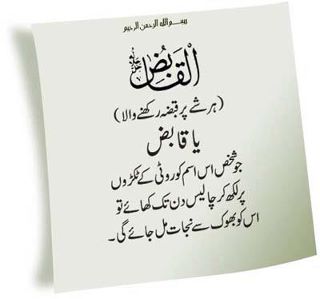 بسم اللہ الرحمن الرحیم
القابض جل جلالہ
(ہر شے پر قبضہ رکھنے والا)
یا قابض
جو شخص اس اسم کو روٹی کے ٹکڑوں
پر لکھ کر چالیس دن تک کھائے تو
اس کو بھوک سے نجات مل جائے گی۔